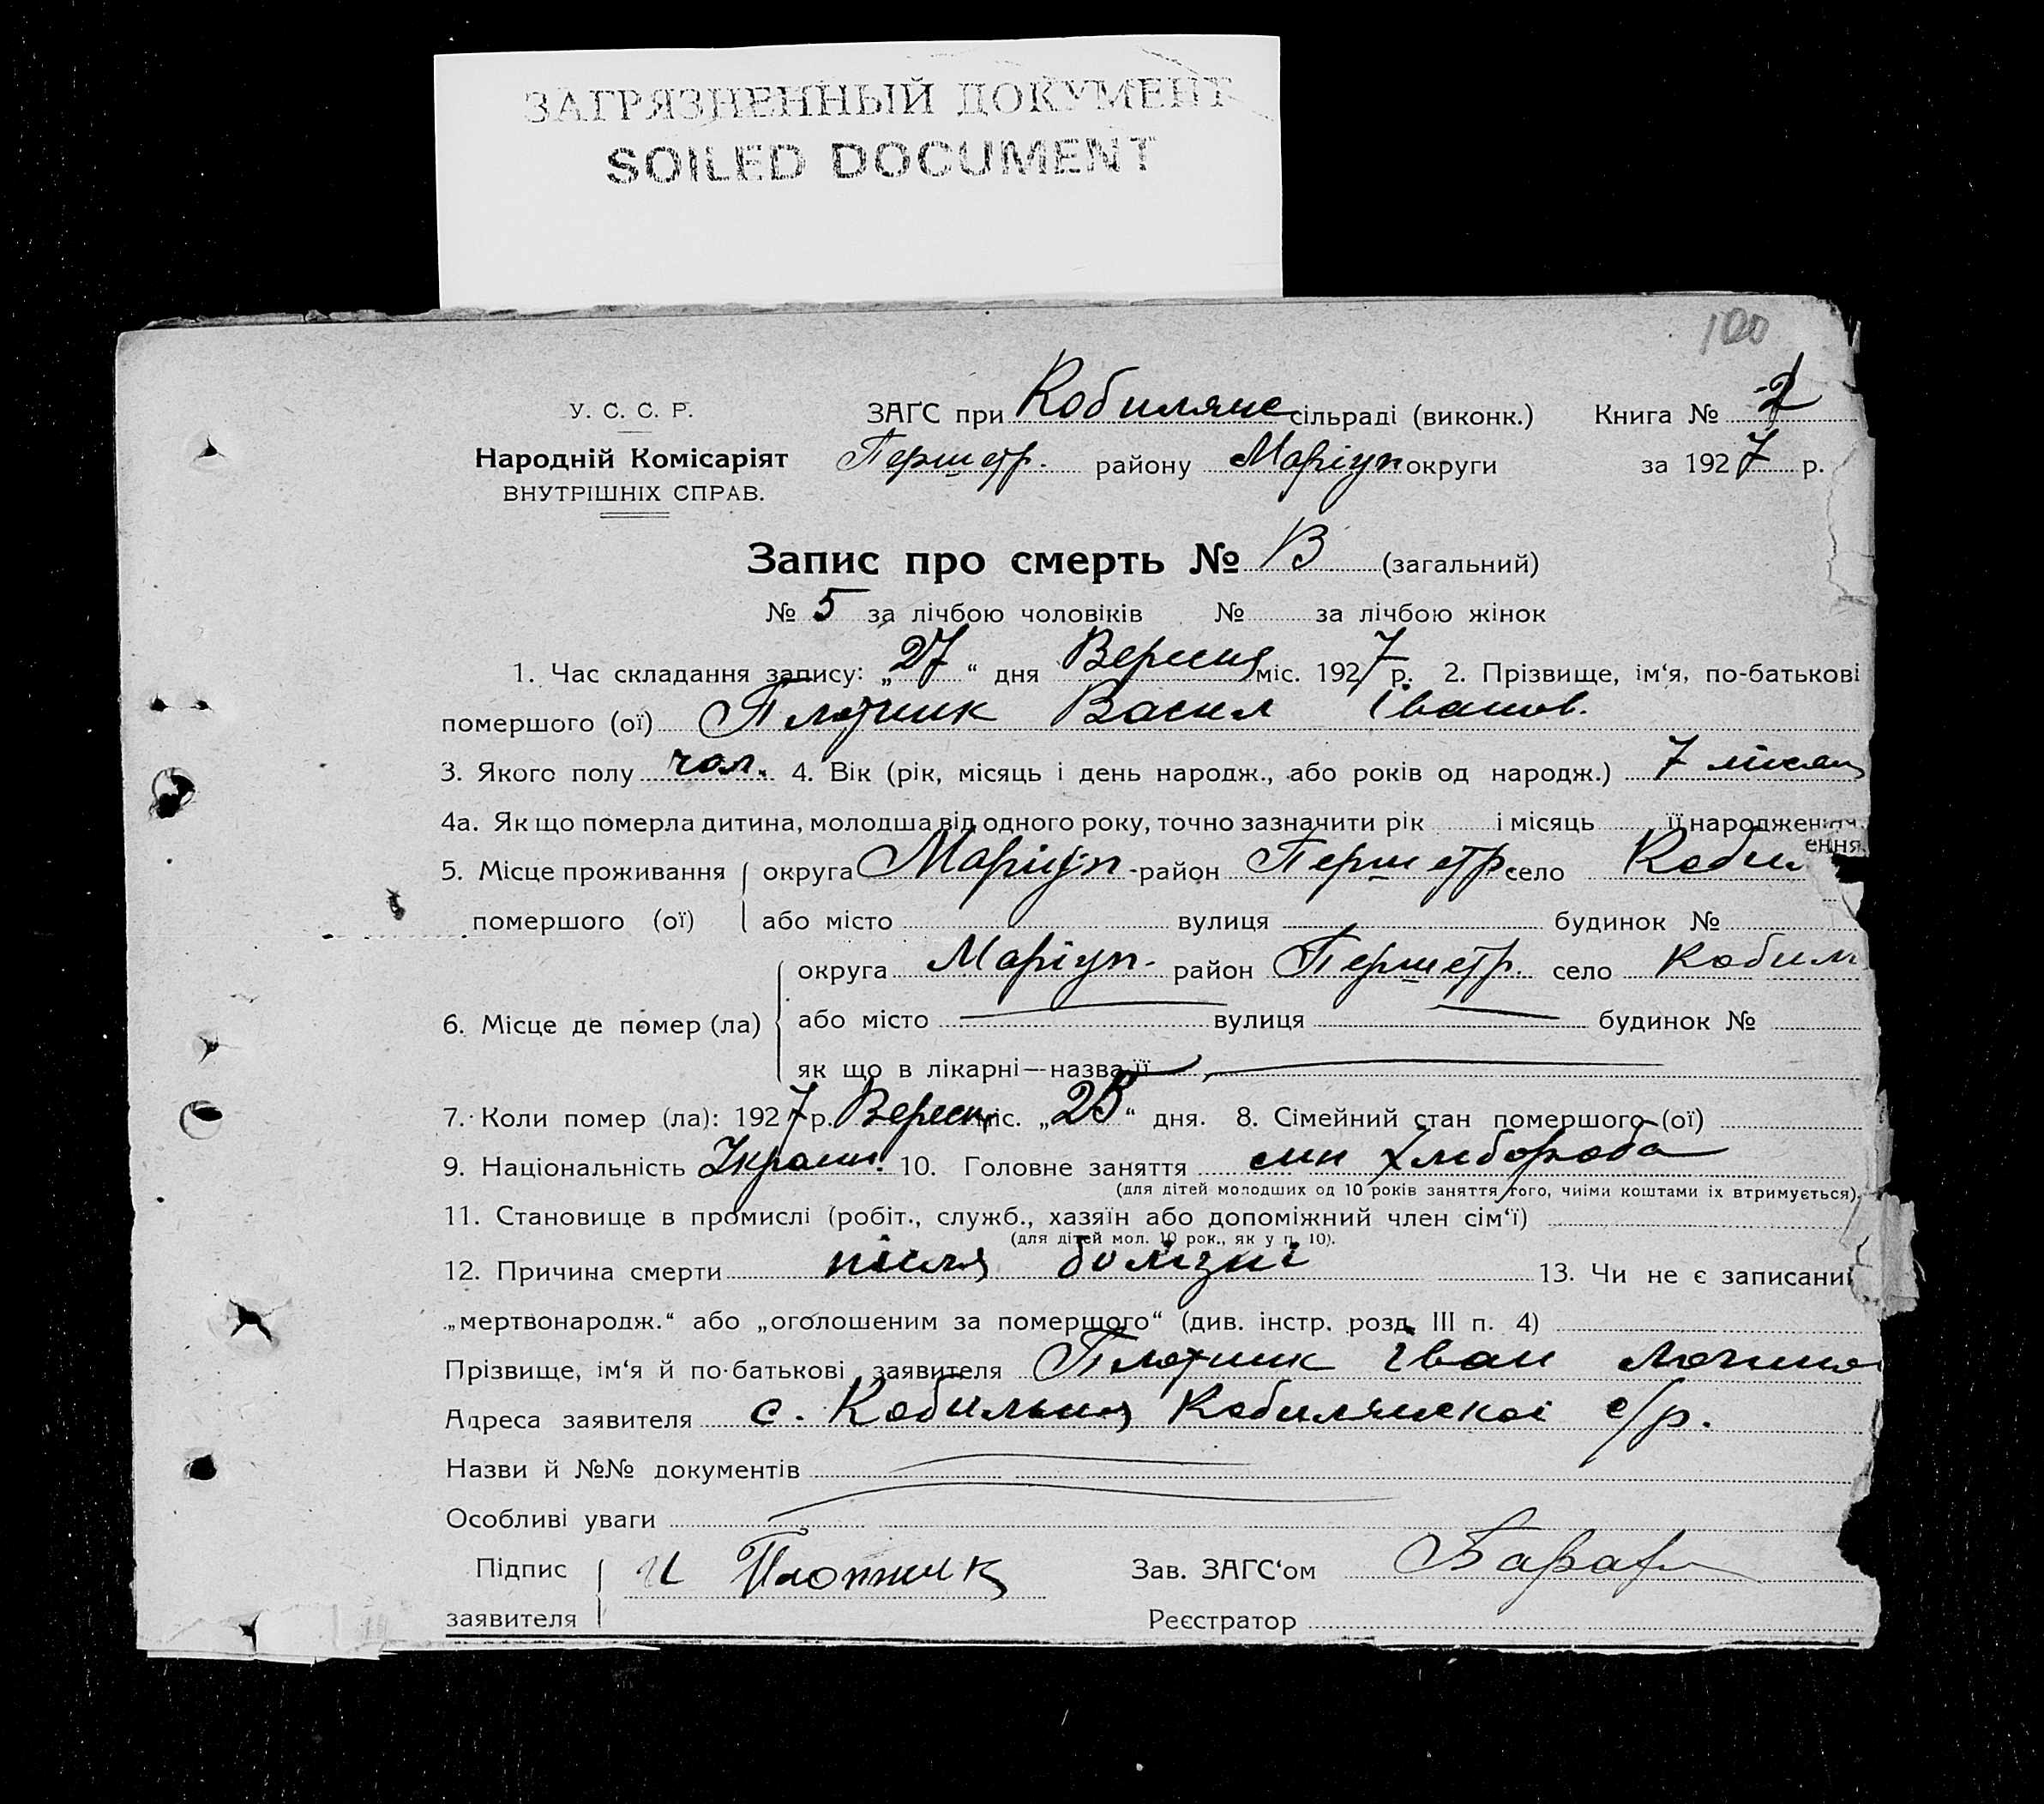 ЗАГРЯЗНЕННЫЙ ДОКУМЕНТ
SOILED DOCUMENT
100
У. С. С. Р.
Народній Комісаріят
ВНУТРІШНІХ СПРАВ.
ЗАҐС при Кобилянс сільраді (виконк.) Книга № 2
Першетр. району Маріуп округи за 1927 р.
Запис про смерть № 13 (загальний)
№ 5 за лічбою чоловіків № за лічбою жінок
1. Час складання запису: „27“ дня Вересня міс. 1927 р. 2. Прізвище, ім‘я, по-батькові
помершого (ої) Плотник Васил Іванов.
3. Якого полу чол. 4. Вік (рік, місяць і день народж., або років од народж.) 7 місяц
4а. Як що померла дитина, молодша від одного року, точно зазначити рік і місяць її народження.
ення.
5. Місце проживання помершого (ої) округа Маріуп - район Першетр село Коби
або місто вулиця будинок №
6. Місце де помер (ла) округа Маріуп. район Першетр. село Кобил
або місто вулиця будинок №
як що в лікарні—назва її
7. Коли помер (ла): 1927 р. Вересн міс. „25“ дня. 8. Сімейний стан помершого (ої)
9. Національність Україн. 10. Головне заняття син хлібороба
(для дітей молодших од 10 років заняття того, чиїми коштами їх втримується).
11. Становище в промислі (робіт., служб., хазяїн або допоміжний член сім‘ї)
(для дітей мол. 10 рок., як у п. 10).
12. Причина смерти після болізні 13. Чи не є записаний
„мертвонародж.“ або „оголошеним за помершого“ (див. інстр. розд. III п. 4)
Прізвище, ім‘я й по-батькові заявителя Плотник Іван
Адреса заявителя с. Кобильня Кобилянскоі с/р.
Назви й №№ документів
Особливі уваги
Підпис заявителя И Плотник Зав. ЗАГС‘ом
Реєстратор